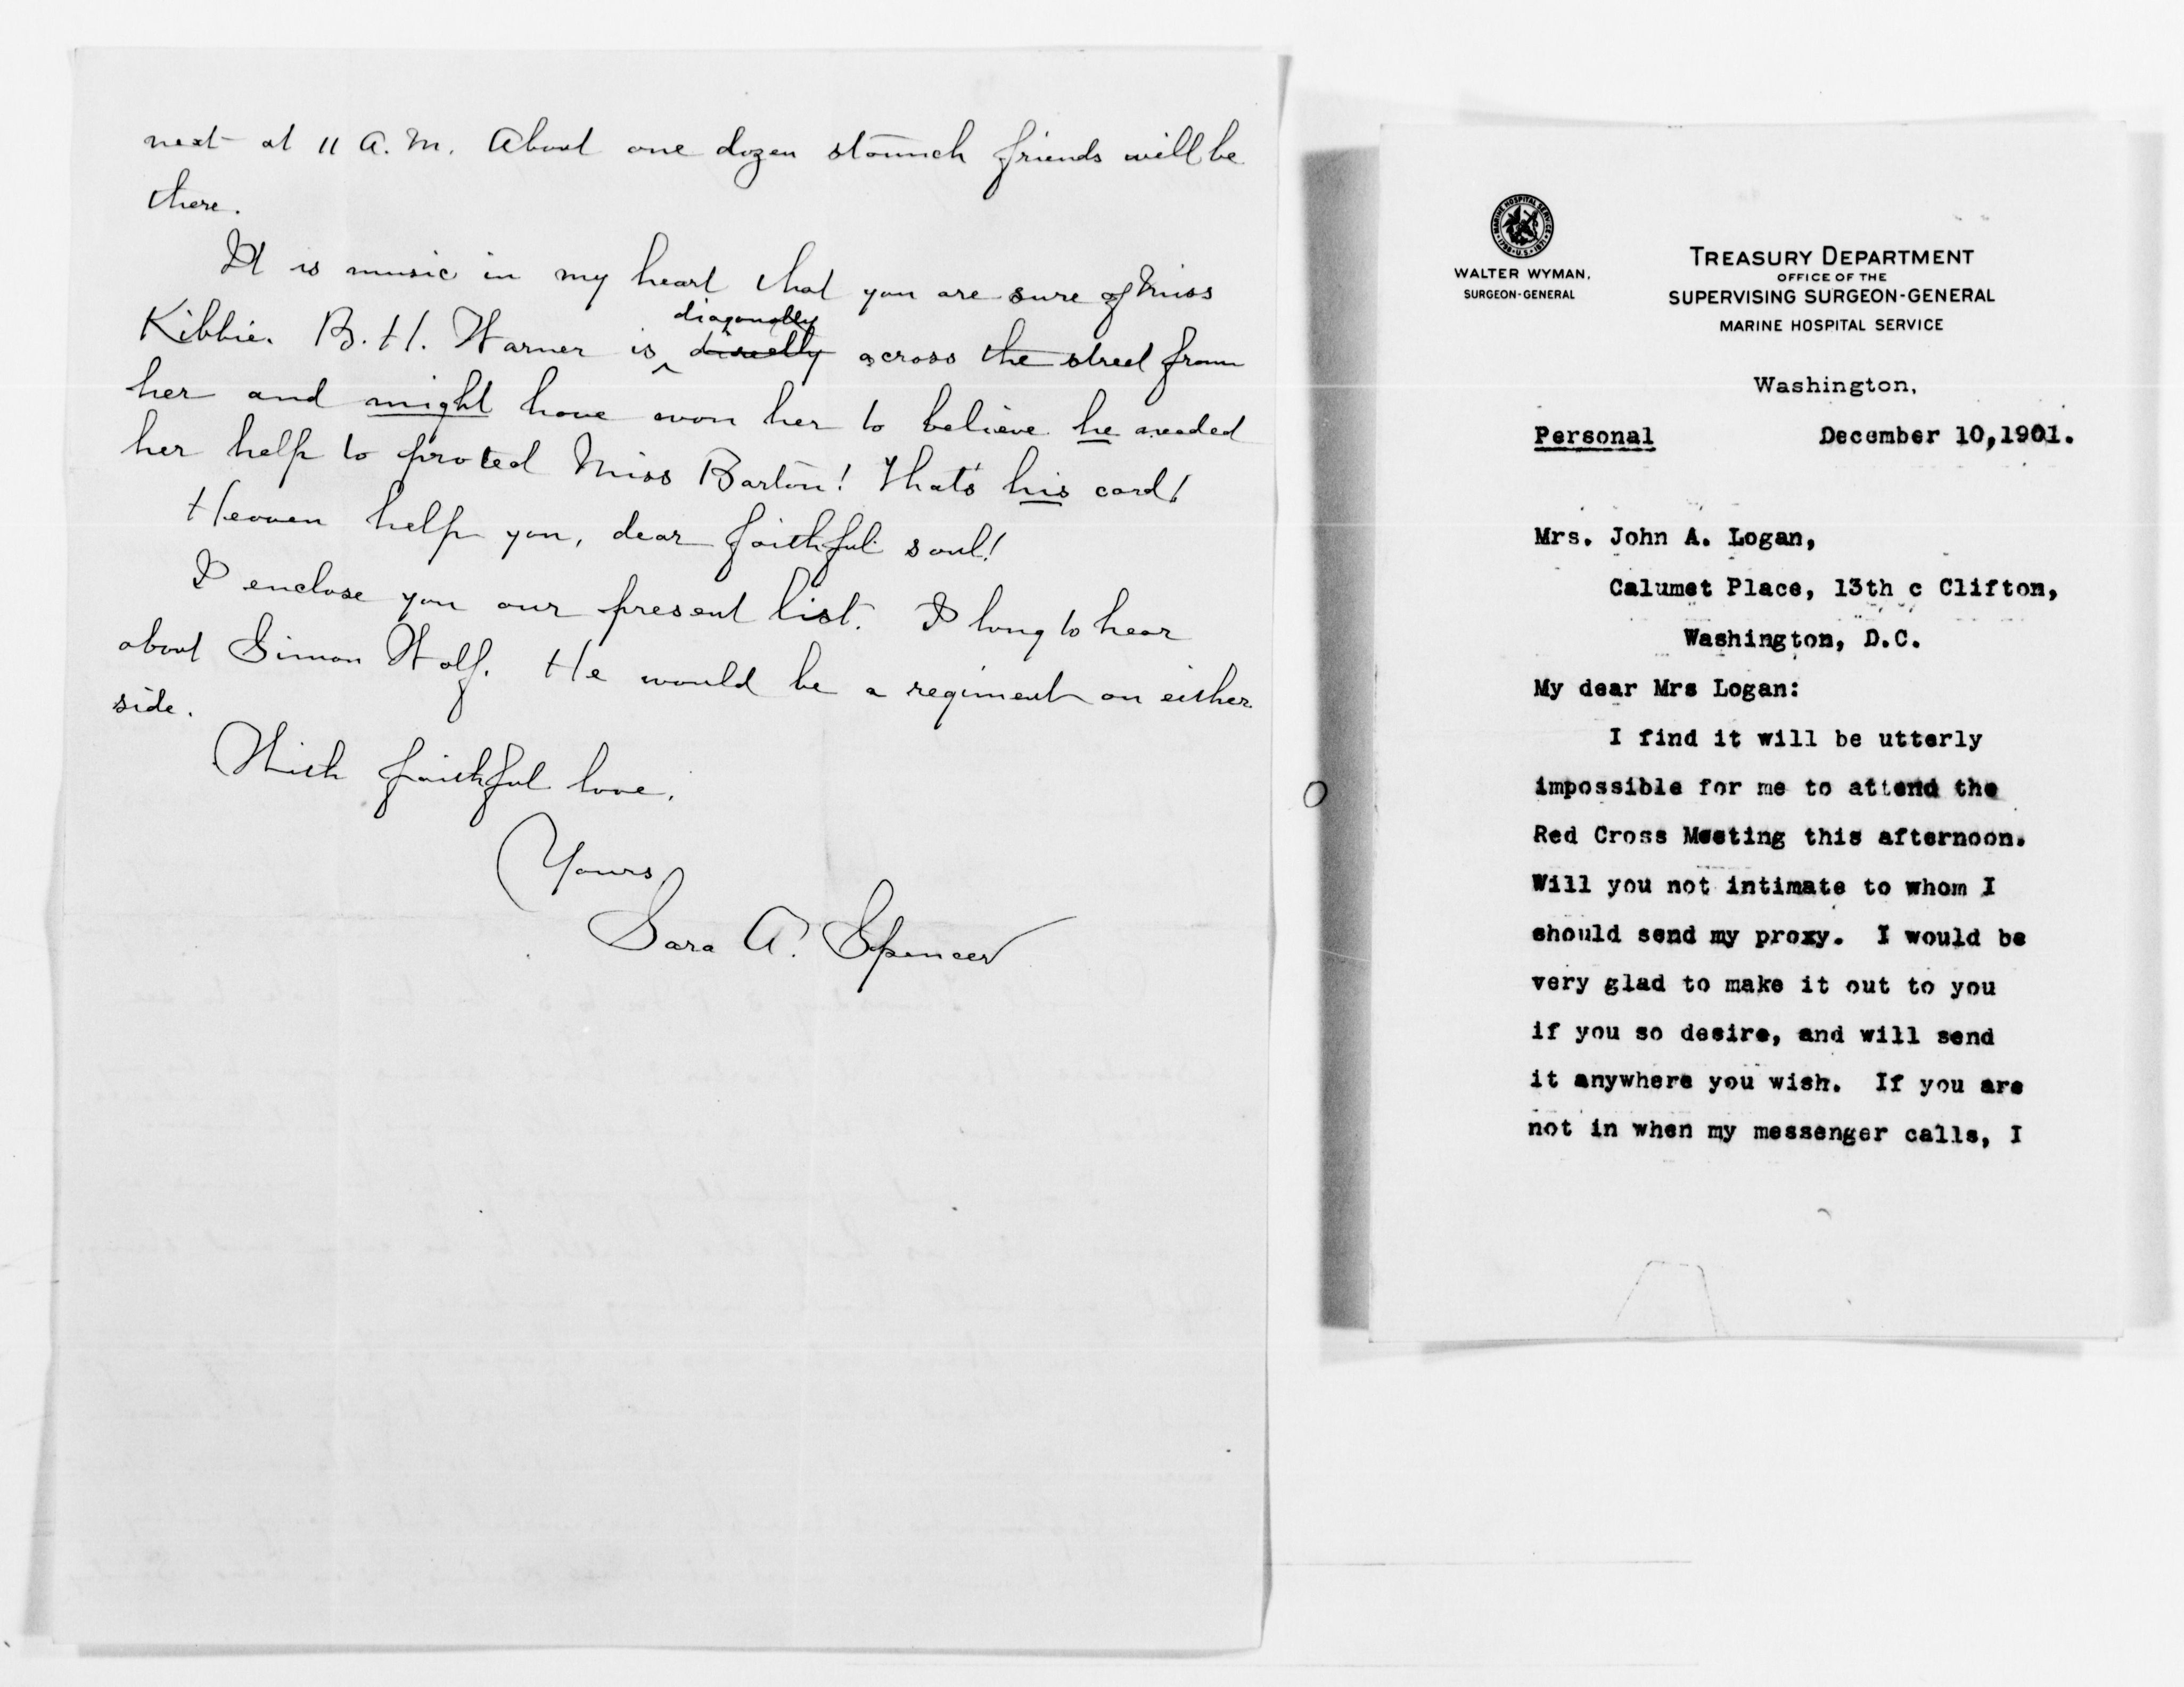 next at 11 A.M. About one dozen staunch friends will be
there.
It is music in my heart that you are sure of Miss
Kibbie. B. H. Warner is diagonally directly across the street from
her and might have won her to believe he needed
her help to protect Miss Barton! That's his card!
Heaven help you, dear faithful soul!
I enclose you our present list. I long to hear
about Simon Wolf. He would be a regiment on either
side.
With faithful love,
Yours
Sara A. Spencer
MARINE HOSPITAL SERVICE
1798 · U.S. · 1871
WALTER WYMAN,
SURGEON-GENERAL
TREASURY DEPARTMENT
OFFICE OF THE
SUPERVISING SURGEON-GENERAL
MARINE HOSPITAL SERVICE
Washington,
Personal December 10,1901.
Mrs. John A. Logan,
Calumet Place, 13th c Clifton,
Washington, D.C.
My dear Mrs Logan:
I find it will be utterly
impossible for me to attend the
Red Cross Meeting this afternoon.
Will you not intimate to whom I
should send my proxy. I would be
very glad to make it out to you
if you so desire, and will send
it anywhere you wish. If you are
not in when my messenger calls, I